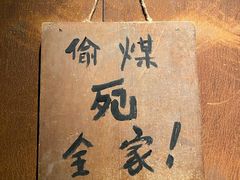 偷煤
死
全家！